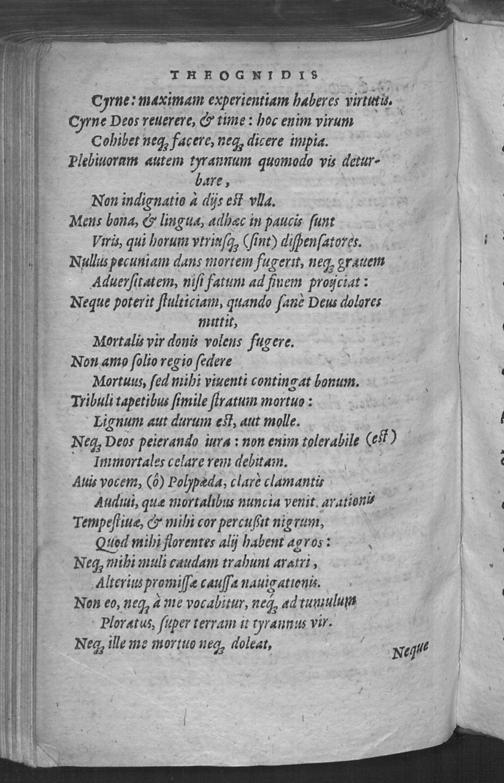 THEOGNIDIS
Cyrne: maximam experientiam haberes virtutis.
Cyrne Deos reuerere, & time: hoc enim virum
Cohibet neqꝫ facere, neqꝫ dicere impia.
Plebiuorum autem tyrannum quomodo vis detur-
bare,
Non indignatio à dijs est vlla.
Mens bona, & lingua, adhæc in paucis sunt
Viris, qui horum vtriusqꝫ (sint) dispensatores.
Nullus pecuniam dans mortem fugerit, neqꝫ grauem
Aduersitatem, nisi fatum ad finem proijciat:
Neque poterit stulticiam, quando sanè Deus dolores
mittit,
Mortalis vir donis volens fugere.
Non amo solio regio sedere
Mortuus, sed mihi viuenti contingat bonum.
Tribuli tapetibus simile stratum mortuo:
Lignum aut durum est, aut molle.
Neqꝫ Deos peierando iura: non enim tolerabile (est)
Immortales celare rem debitam.
Auis vocem, (ô) Polypæda, clarè clamantis
Audiui, quæ mortalibus nuncia venit arationis
Tempestiuæ, & mihi cor percußit nigrum,
Quod mihi florentes alij habent agros:
Neqꝫ mihi muli caudam trahunt aratri,
Alterius promissæ caussa nauigationis.
Non eo, neqꝫ à me vocabitur, neqꝫ ad tumulum
Ploratus, super terram it tyrannus vir.
Neqꝫ ille me mortuo neqꝫ doleat,
Neque